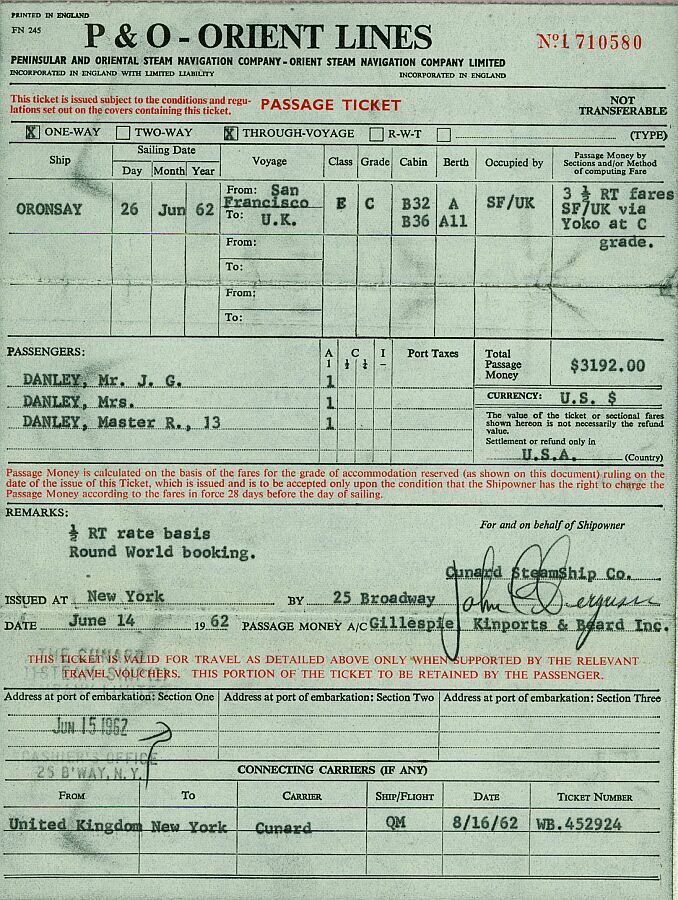 PRINTED IN ENGLAND
FN 245
P & O - ORIENT LINES
Nº1 710580
PENINSULAR AND ORIENTAL STEAM NAVIGATION COMPANY - ORIENT STEAM NAVIGATION COMPANY LIMITED
INCORPORATED IN ENGLAND WITH LIMITED LIABILITY INCORPORATED IN ENGLAND
This ticket is issued subject to the conditions and regu-
lations set out on the covers containing this ticket.
PASSAGE TICKET
NOT
TRANSFERABLE
X ONE-WAY TWO-WAY X THROUGH-VOYAGE R-W-T (TYPE)
Ship Sailing Date Voyage Class Grade Cabin Berth Occupied by Passage Money by
Sections and/or Method
of computing Fare
Day Month Year
ORONSAY 26 Jun 62 From: San
Francisco
To: U.K.
E C B32 A SF/UK
B36 All
3 ½ RT fares
SF/UK via
Yoko at C
grade.
From:
To:
From:
To:
PASSENGERS: A C I Port Taxes Total
Passage
Money
$3192.00
1 ½ ¼ -
DANLEY, Mr. J. G. 1
DANLEY, Mrs. 1
DANLEY, Master R., 13 1
CURRENCY: U.S. $
The value of the ticket or sectional fares
shown hereon is not necessarily the refund
value.
Settlement or refund only in
U.S.A. (Country)
Passage Money is calculated on the basis of the fares for the grade of accommodation reserved (as shown on this document) ruling on the
date of the issue of this Ticket, which is issued and is to be accepted only upon the condition that the Shipowner has the right to charge the
Passage Money according to the fares in force 28 days before the day of sailing.
REMARKS:
½ RT rate basis
Round World booking.
For and on behalf of Shipowner
Cunard SteamShip Co.
John C Ferguson
ISSUED AT New York BY 25 Broadway
DATE June 14 1962 PASSAGE MONEY A/C Gillespie Kinports & Beard Inc.
THE CUNARD
THIS TICKET IS VALID FOR TRAVEL AS DETAILED ABOVE ONLY WHEN SUPPORTED BY THE RELEVANT
TRAVEL VOUCHERS. THIS PORTION OF THE TICKET TO BE RETAINED BY THE PASSENGER.
Address at port of embarkation: Section One Address at port of embarkation: Section Two Address at port of embarkation: Section Three
JUN 15 1962
CASHIER'S OFFICE
25 B'WAY, N.Y.
CONNECTING CARRIERS (IF ANY)
FROM TO CARRIER SHIP/FLIGHT DATE TICKET NUMBER
United Kingdom New York Cunard QM 8/16/62 WB.452924